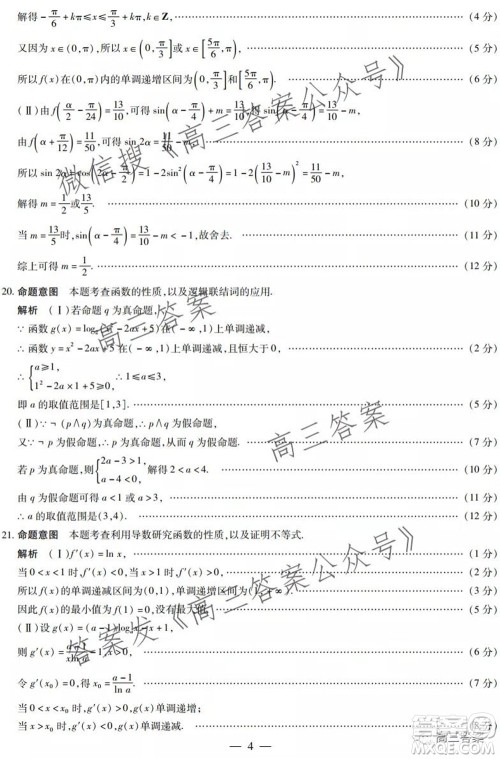 解得 -π/6 + kπ ≤ x ≤ π/3 + kπ, k∈Z, (4 分)
又因为 x∈(0,π), 所以 x∈(0, π/3] 或 x∈[5π/6, π), (5 分)
所以 f(x) 在 (0,π) 内的单调递增区间为 (0, π/3] 和 [5π/6, π). (6 分)
(Ⅱ) 由 f(α/2 - π/24) = 13/10, 可得 sin(α - π/4) + m = 13/10, 得 sin(α - π/4) = 13/10 - m, (7 分)
由 f(α + π/12) = 11/50, 可得 sin 2α = 11/50 - m, (8 分)
所以 sin 2α = cos(2α - π/2) = 1 - 2sin²(α - π/4) = 1 - 2(13/10 - m)² = 11/50 - m,
解得 m = 1/2 或 13/5. (10 分)
当 m = 13/5 时, sin(α - π/4) = 13/10 - m < -1, 故舍去. (11 分)
综上可得 m = 1/2. (12 分)
20. 命题意图 本题考查函数的性质, 以及逻辑联结词的应用.
解析 (Ⅰ) 若命题 q 为真命题,
∵ 函数 g(x) = log (x² - 2ax + 5) 在 (-∞,1) 上单调递减,
∴ 函数 y = x² - 2ax + 5 在 (-∞,1) 上单调递减, 且恒大于 0,
∴ {a≥1, 1² - 2a×1 + 5≥0, ∴ 1≤a≤3, (5 分)
即 a 的取值范围是 [1,3]. (6 分)
(Ⅱ) ∵ ¬(p∧q) 为真命题, ∴ p∧q 为假命题,
又 ∵ ¬p 为假命题, ∴ p 为真命题, 从而 q 为假命题. (7 分)
若 p 为真命题, 则 {2a - 3 > 1, a - 4 < 0, 解得 2 < a < 4. (9 分)
由 q 为假命题可得 a < 1 或 a > 3, (11 分)
∴ a 的取值范围是 (3,4). (12 分)
21. 命题意图 本题考查利用导数研究函数的性质, 以及证明不等式.
解析 (Ⅰ) f′(x) = ln x, (1 分)
当 0 < x < 1 时, f′(x) < 0, 当 x > 1 时, f′(x) > 0, (2 分)
所以 f(x) 的单调递减区间为 (0,1), 单调递增区间为 (1,+∞), (4 分)
因此 f(x) 的最小值为 f(1) = 0, 没有最大值. (5 分)
(Ⅱ) 设 g(x) = (a - 1)logₐx - x + 1,
则 g′(x) = (a-1)/(xln a) - 1, (6 分)
令 g′(x₀) = 0, 得 x₀ = (a-1)/ln a. (7 分)
当 0 < x < x₀ 时, g′(x) > 0, g(x) 单调递增;
当 x > x₀ 时, g′(x) < 0, g(x) 单调递减. (8 分)
— 4 —
微信搜《高三答案公众号》
高三答案
答案发《高三答案公众号》
高三答案